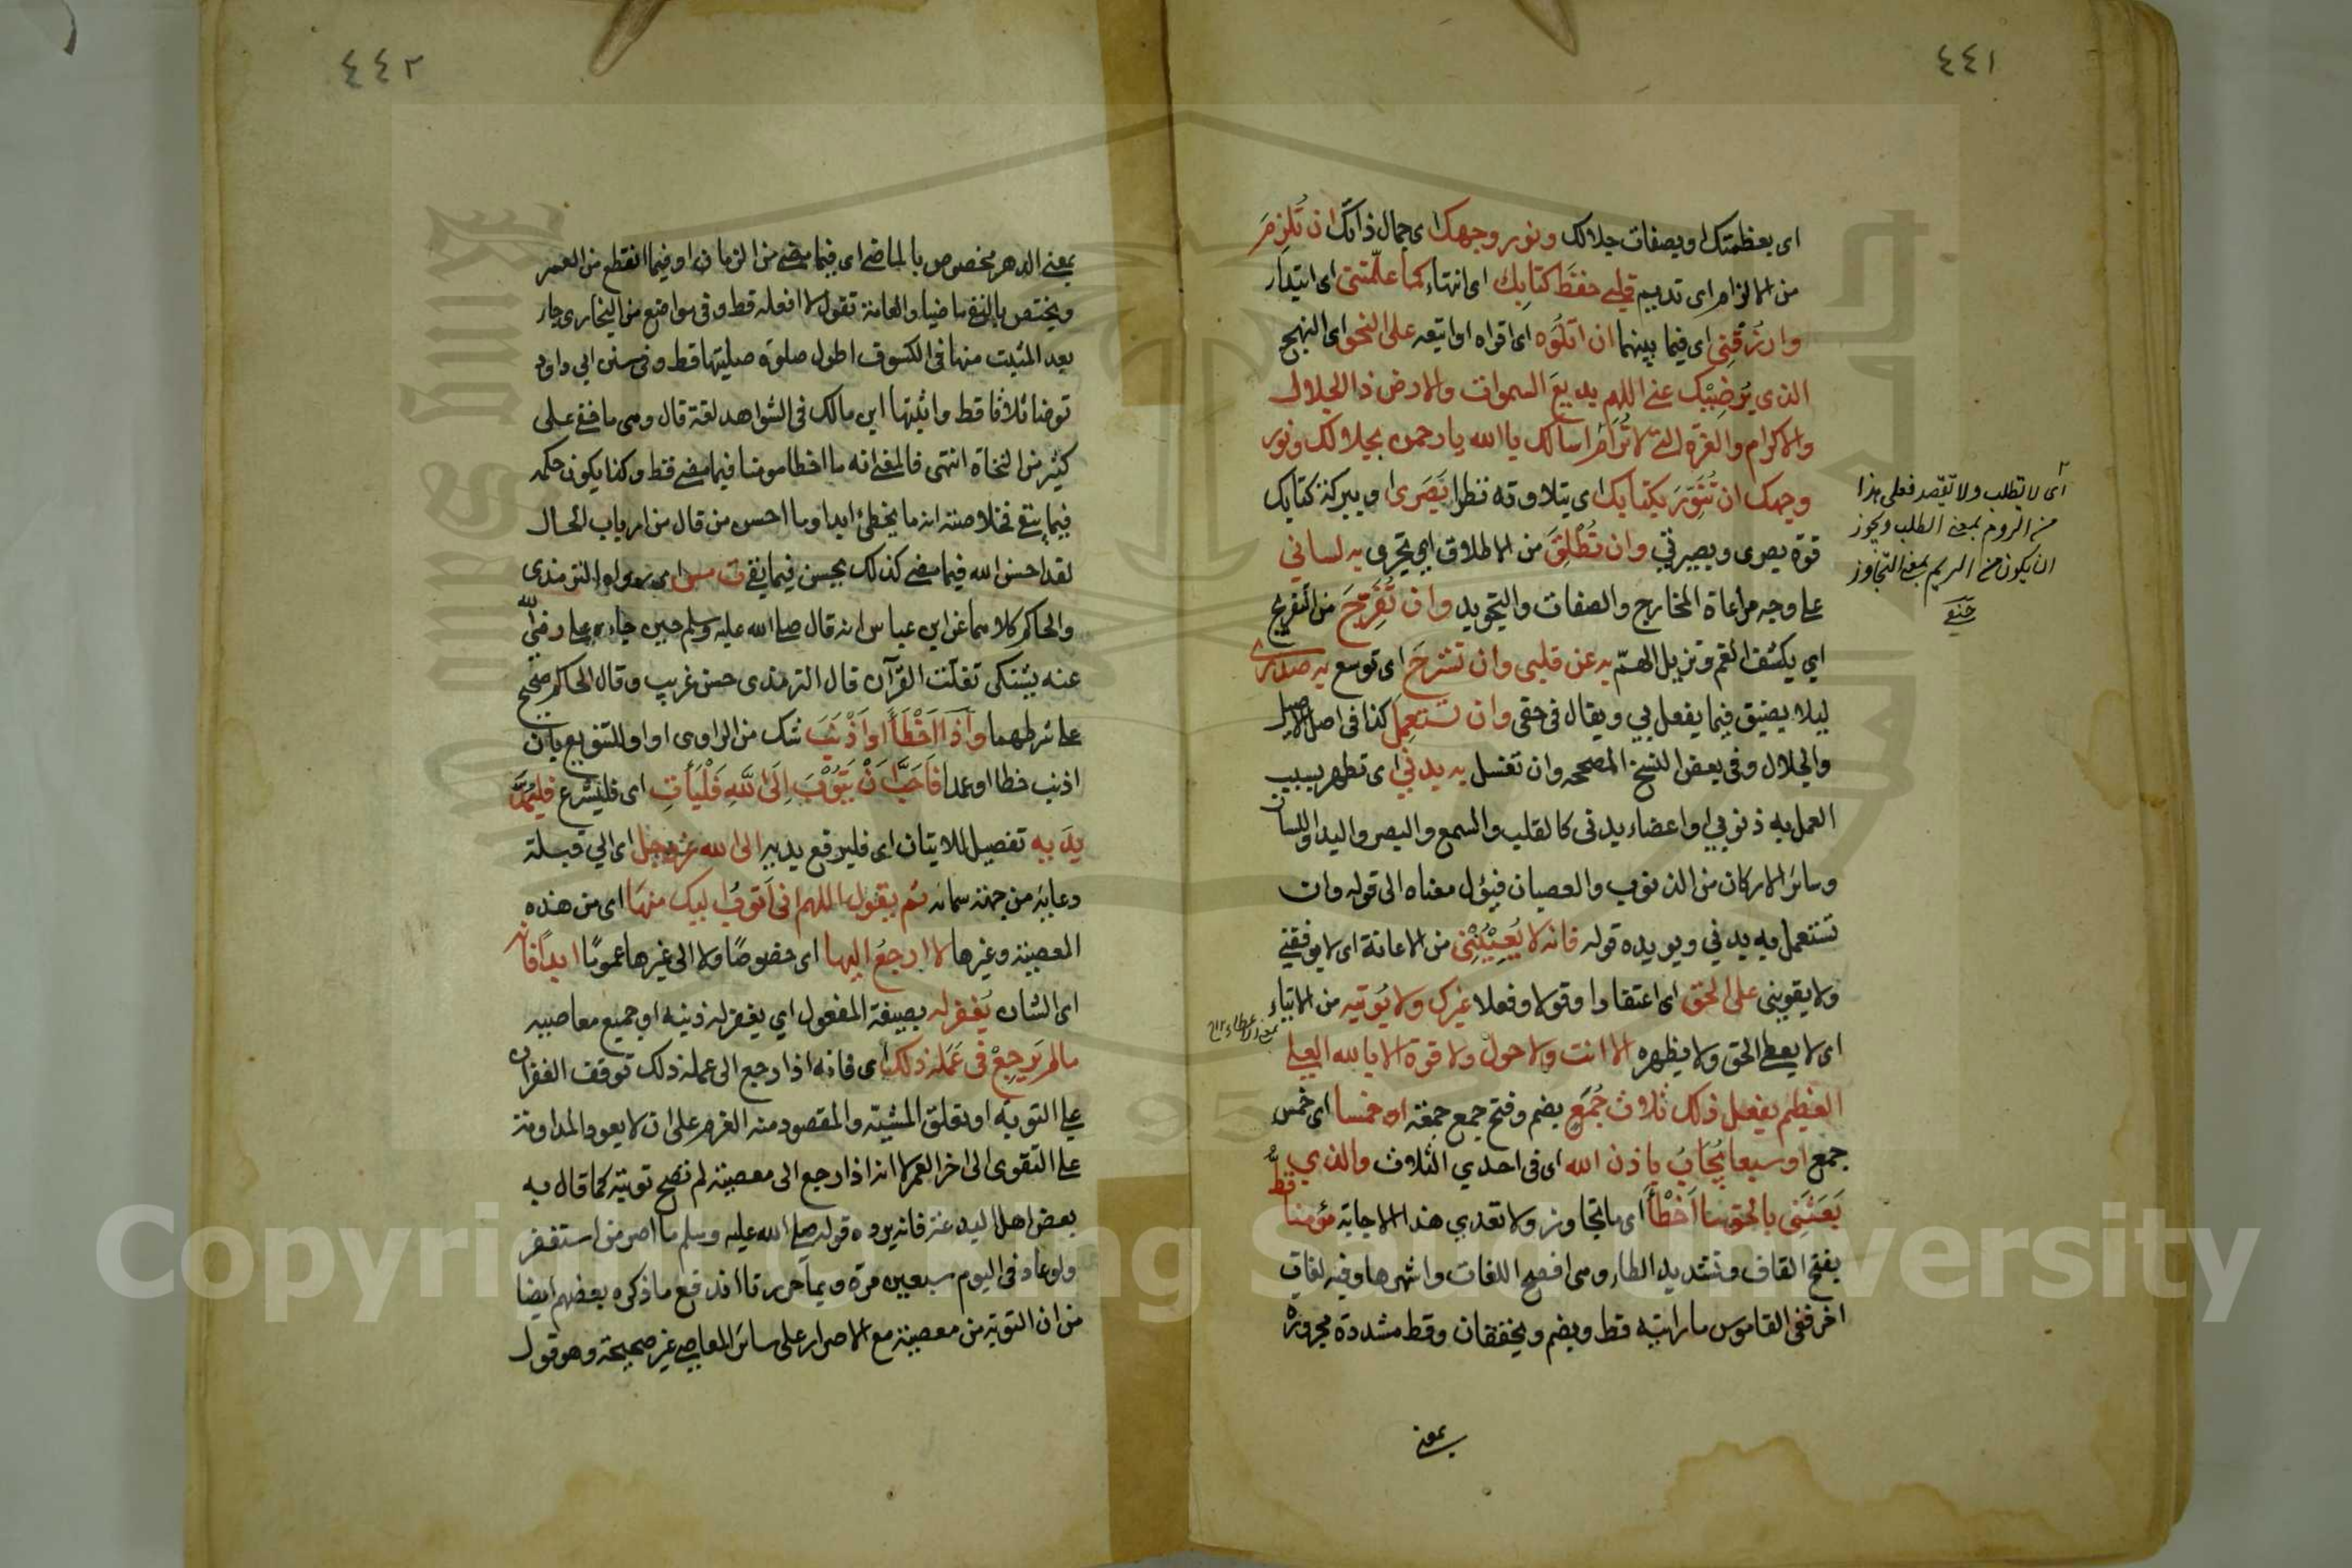 ٤٤١
اى بعظمتك او بصفات جلالك ونور وجهك اى جمال ذاتك ان تُلزِمَ
من الالزام اى تديم قلبي حفظَ كتابك اى انتهاء كما علّمتنى اى ابتداء
وارزُقنِى اى فيما بينهما ان اتلُوَه اى اقراه او اتبعه على النحو اى النهج
الذى يُرضِيْك عنى اللهم بديعَ السموات والارض ذا الجلال
والاكرام والعزة التى لا تُرَامُ اسالك يا الله يا رحمن بجلالك ونور
وجهك ان تُنَوِّرَ بكتابك اى بتلاوته نظرا بَصَرى او ببركة كتابك
قوة بصرى وبصيرتي وان تُطْلِقَ من الاطلاق اي تجرى به لساني
على وجه مراعاة المخارج والصفات والتجويد وان تُفَرِّجَ من التفريج
اي يكشف الغم وتزيل الهمّ به عن قلبى وان تشرحَ اى توسع به صدرى
ليلا يضيق فيما يفعل بي ويقال فى حقى وان تستعمِلَ كذا فى اصل الاصيل
والجلال وفى بعض النسخ المصححه وان تغسل به بدني اى تطهر بسبب
العمل به ذنوبي او اعضاء بدنى كالقلب والسمع والبصر واليد او اللسان
وسائر الاركان من الذنوب والعصيان فيؤل معناه الى قوله وان
تستعمل به بدني ويويده قوله فانه لا يُعِيْنُنِى من الاعانة اى لا يوفقنى
ولا يقوينى على الحق اى اعتقادا وقولا وفعلا غيرك ولا يُوتيه من الايتاء
اى لا يعطى الحق ولا يظهره الا انت ولا حول ولا قوة الا بالله العلى
العظيم يفعل ذلك ثلاث جُمَعٍ بضم وفتح جمع جمعة او خمسا اى خمس
جمع او سبعا يُجَابُ باذن الله اى فى احدي الثلاث والذي
بَعَثَنِى بالحق ما اَخْطَأَ اى ما تجاوز ولا تعدي هذا الاجابة مؤمنا قطُّ
بفتح القاف وتشديد الطاء ومى افصح اللغات واشهرها وفيه لغات
اخر ففى القاموس ما رايته قط ويضم ويخففان وقط مشددة مجرورة
بمعنى
اى لا يطلب ولا يقصد فعلى هذا
من الروم بمعنى الطلب ويجوز
ان يكون من الريم بمعنى التجاوز
حنفى
بمعنى الاعطاء
٤٤٢
بمعنى الدهر مخصوص بالماضى اى فيما مضى من الزمان او فيما انقطع من العمر
ويختص بالنفى ماضيا والعامة تقول لا افعله قط وفى مواضع من البخارى جاء
بعد المثبت منها فى الكسوف اطول صلوة صليتها قط وفى سنن ابي داود
توضا ثلاثا قط واثبتها ابن مالك فى الشواهد لغة قال ومى ما خفى على
كثير من النحاة انتهى فالمعنى انه ما اخطا مومنا فيما مضى قط وكذا يكون حكمه
فيما بقى فخلاصته انه ما يخطئ ابدا وما احسن من قال من ارباب الحال
لقد احسن الله فيما مضى كذلك يحسن فيما بقى ت مس اى رواه الترمذى
والحاكم كلاهما عن ابن عباس انه قال صلى الله عليه وسلم حين جاءه على رضى الله
عنه يشتكى تفلت القرآن قال الترمذى حسن غريب وقال الحاكم صحيح
على شرطهما وَاِذَا اَخْطَأَ اَو اَذْنَبَ شك من الراوى او او للتنويع بان
اذنب خطا او عمدا فَاَحَبَّ اَنْ يَتُوْبَ اِلَى اللّهِ فَلْيَأْتِ اى فليشرع فَلْيَمُدَّ
يدَيه تفصيل للاتيان اى فليرفع يديه الى الله عز وجل اى الي قبلة
دعائه من جهة سمائه ثم يقول اللهم انى اَتوبُ اليك منها اى من هذه
المعصية وغيرها لا ارجعُ اليها اى خصوصًا ولا الى غيرها عمومًا ابدًا فانه
اى الشان يُغفر له بصيغة المفعول اي يغفر له ذنبه او جميع معاصيه
مالم يَرجِعْ فى عَمَله ذلك اى فانه اذا رجع الى عمله ذلك توقف الغفران
على التوبة او تعلق المشية والمقصود منه العزم على ان لا يعود والمداومة
على التقوى الى اخر العمر لا انه اذا رجع الى معصية لم تصح توبته كما قال به
بعض اهل البدعة فانه يرده قوله صلى الله عليه وسلم ما اصر من استغفر
ولو عاد فى اليوم سبعين مرة وبما حررنا اندفع ما ذكره بعضهم ايضا
من ان التوبة من معصية مع الاصرار على سائر المعاصى غير صحيحة وهو قول
Copyright © King Saud University